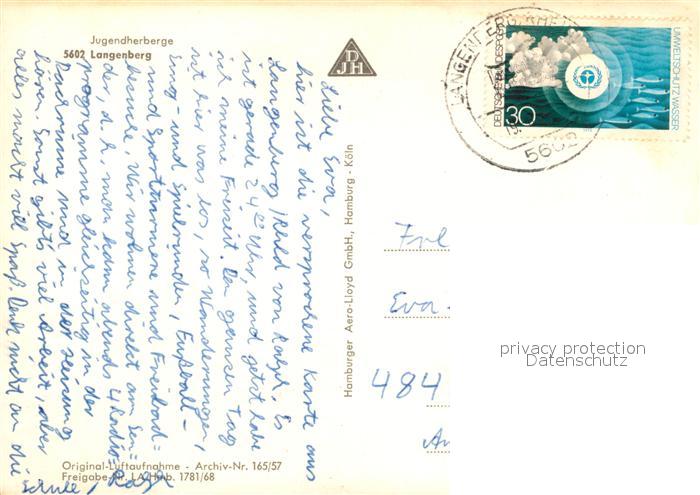 Jugendherberge
5602 Langenberg
DJH
Liebe Eva,
hier ist die versprochene Karte aus
Langenberg (Rhld von Ralph. Es
ist gerade 24°° Uhr, und jetzt habe
ich meine Freizeit. Den ganzen Tag
ist hier was los, so Wanderungen,
Sing- und Spielrunden, Fußball-
und Sportturniere und Freibad-
besuche. Wir wohnen direkt am Sen-
der, d. h. man kann abends 4 Radio-
programme gleichzeitig in der
Dachrinne und in der Heizung
hören. Sonst gibt's viel Arbeit, aber
alles macht viel Spaß Denk nicht an die
Schule,
Original-Luftaufnahme - Archiv-Nr. 165/57
Freigabe-Nr. LA/Hmb. 1781/68
Hamburger Aero-Lloyd GmbH., Hamburg - Köln
LANGENBERG, RHEINL
5602
DEUTSCHE BUNDESPOST
30
UMWELTSCHUTZ: WASSER
Frl
Eva
484
An
privacy protection
Datenschutz